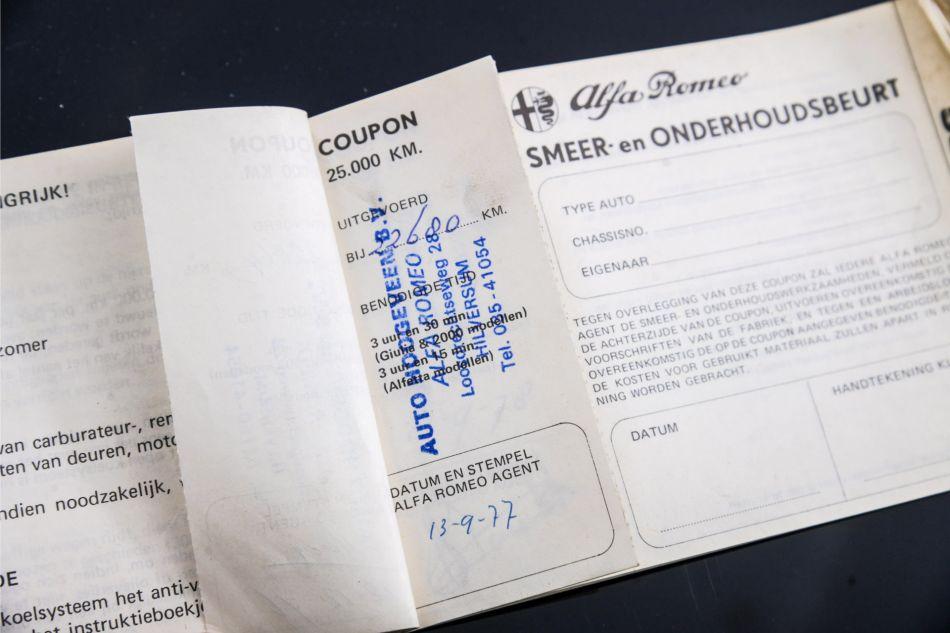 NGRIJK!
zomer
van carburateur-, rem
ten van deuren, moto
ndien noodzakelijk,
DE
koelsysteem het anti-v
het instruktieboekj
COUPON
25.000 KM.
UITGEVOERD
BIJ KM.
BENODIGDE TIJD
3 uur en 30 min.
(Giulia & 2000 modellen)
3 uur en 15 min.
(Alfetta modellen)
AUTO HOOGEVEEN B.V.
ALFA ROMEO
Loosdrechtseweg 28
HILVERSUM
Tel. 035-41054
DATUM EN STEMPEL
ALFA ROMEO AGENT
13-9-77
Alfa Romeo
SMEER- en ONDERHOUDSBEURT
TYPE AUTO
CHASSISNO.
EIGENAAR
TEGEN OVERLEGGING VAN DEZE COUPON ZAL IEDERE ALFA ROMEO
AGENT DE SMEER- EN ONDERHOUDSWERKZAAMHEDEN, VERMELD
DE ACHTERZIJDE VAN DE COUPON, UITVOEREN OVEREENKOMSTIG
VOORSCHRIFTEN VAN DE FABRIEK, EN TEGEN EEN ARBEIDSLOON
OVEREENKOMSTIG DE OP DE COUPON AANGEGEVEN BENODIGDE
DE KOSTEN VOOR GEBRUIKT MATERIAAL ZULLEN APART
NING WORDEN GEBRACHT.
DATUM
HANDTEKENING